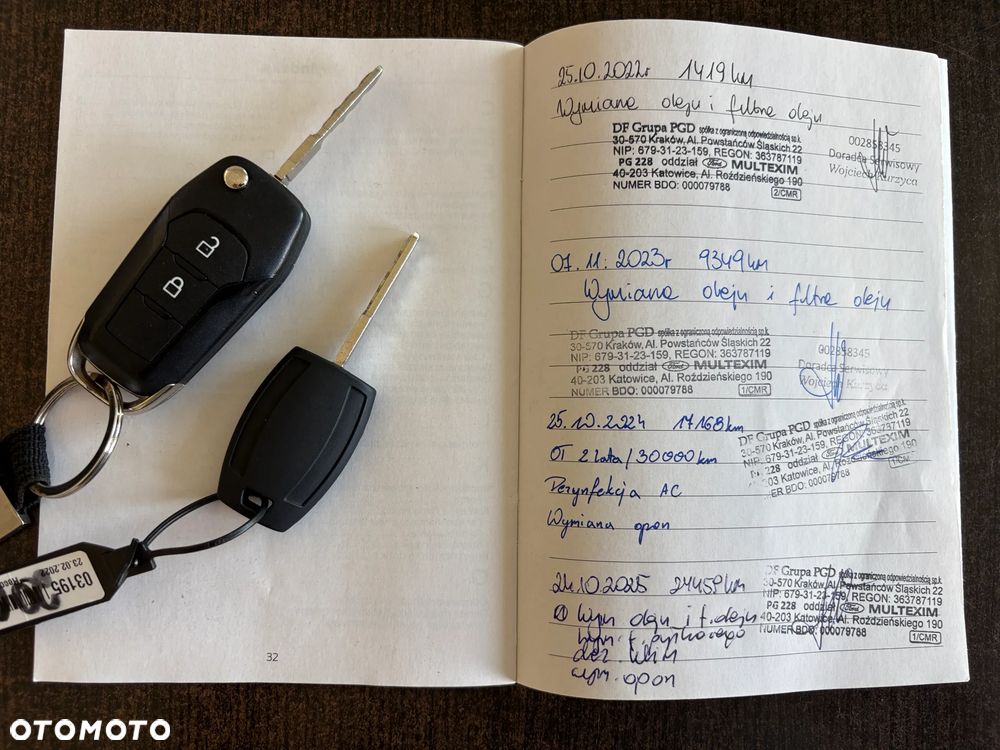 25.10.2022r 1419 km
Wymiana oleju i filtra oleju
DF Grupa PGD spółka z ograniczoną odpowiedzialnością sp.k.
30-570 Kraków, Al. Powstańców Śląskich 22
NIP: 679-31-23-159, REGON: 363787119
PG 228 oddział Ford MULTEXIM
40-203 Katowice, Al. Roździeńskiego 190
NUMER BDO: 000079788
2/CMR
002858345
Doradca Serwisowy
Wojciech Kurzyca
07.11.2023r 9349 km
Wymiana oleju i filtra oleju
DF Grupa PGD spółka z ograniczoną odpowiedzialnością sp.k.
30-570 Kraków, Al. Powstańców Śląskich 22
NIP: 679-31-23-159, REGON: 363787119
PG 228 oddział Ford MULTEXIM
40-203 Katowice, Al. Roździeńskiego 190
NUMER BDO: 000079788
1/CMR
002858345
Doradca Serwisowy
Wojciech Kurzyca
25.10.2024 17168 km
OT 2 lata/30000 km
Dezynfekcja AC
Wymiana opon
DF Grupa PGD spółka z ograniczoną odpowiedzialnością sp.k.
30-570 Kraków, Al. Powstańców Śląskich 22
NIP: 679-31-23-159, REGON: 363787119
PG 228 oddział Ford MULTEXIM
40-203 Katowice, Al. Roździeńskiego 190
NUMER BDO: 000079788
1/CMR
24.10.2025 27459 km
Wym oleju i f. oleju
wym. f. pyłkowego
dez. klim
wym. opon
DF Grupa PGD spółka z ograniczoną odpowiedzialnością sp.k.
30-570 Kraków, Al. Powstańców Śląskich 22
NIP: 679-31-23-159, REGON: 363787119
PG 228 oddział Ford MULTEXIM
40-203 Katowice, Al. Roździeńskiego 190
NUMER BDO: 000079788
1/CMR
03195
23.02.2022
32
OTOMOTO